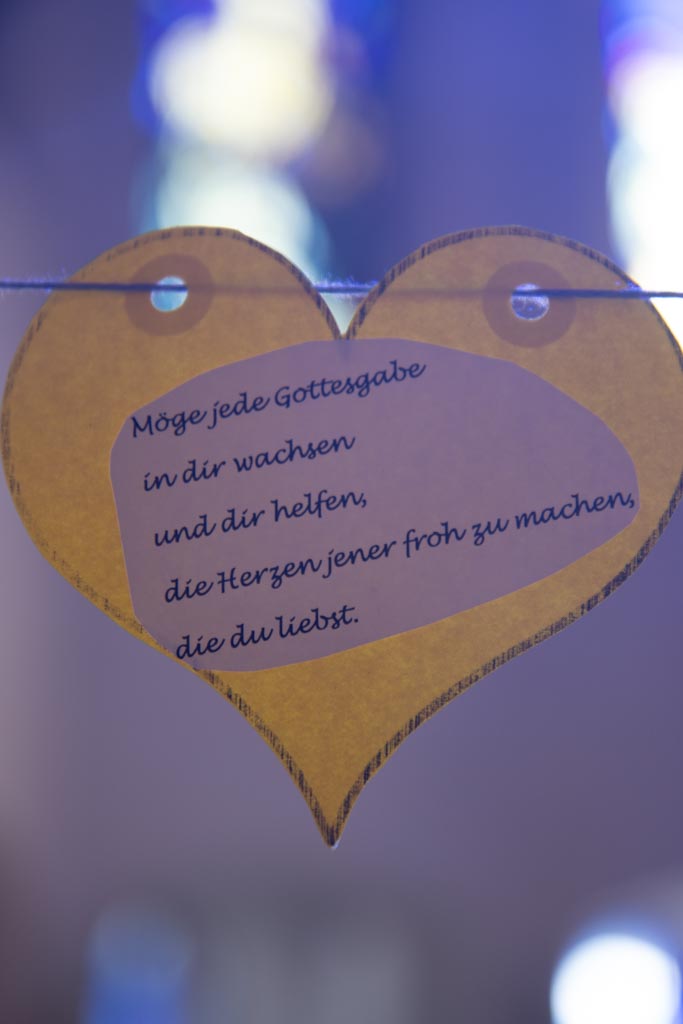 Möge jede Gottesgabe
in dir wachsen
und dir helfen,
die Herzen jener froh zu machen,
die du liebst.